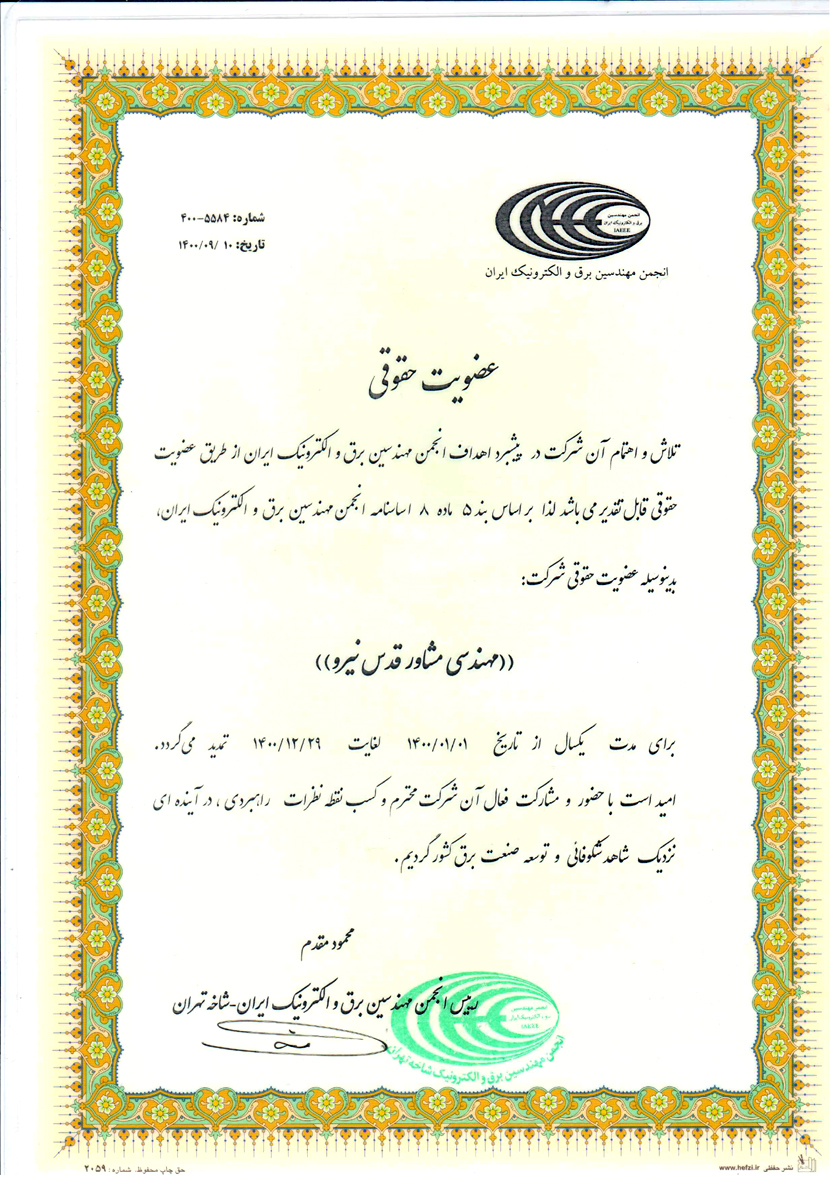 شماره: ۵۵۸۴-۴۰۰
تاریخ: ۱۰ /۱۴۰۰/۰۹
انجمن مهندسین
برق و الکترونیک ایران
IAEEE
انجمن مهندسین برق و الکترونیک ایران
عضویت حقوقی
تلاش و اهتمام آن شرکت در پیشبرد اهداف انجمن مهندسین برق و الکترونیک ایران از طریق عضویت
حقوقی قابل تقدیر می باشد لذا بر اساس بند ۵ ماده ۸ اساسنامه انجمن مهندسین برق و الکترونیک ایران،
بدینوسیله عضویت حقوقی شرکت:
((مهندسی مشاور قدس نیرو))
برای مدت یکسال از تاریخ ۱۴۰۰/۰۱/۰۱ لغایت ۱۴۰۰/۱۲/۲۹ تمدید می گردد.
امید است با حضور و مشارکت فعال آن شرکت محترم و کسب نقطه نظرات راهبردی ، در آینده ای
نزدیک شاهد شکوفائی و توسعه صنعت برق کشور گردیم.
محمود مقدم
رییس انجمن مهندسین برق و الکترونیک ایران-شاخه تهران
انجمن مهندسین
برق و الکترونیک ایران
IAEEE
انجمن مهندسین برق و الکترونیک شاخه تهران
نشر حفظی www.hefzi.ir
حق چاپ محفوظ. شماره: ۲۰۵۹